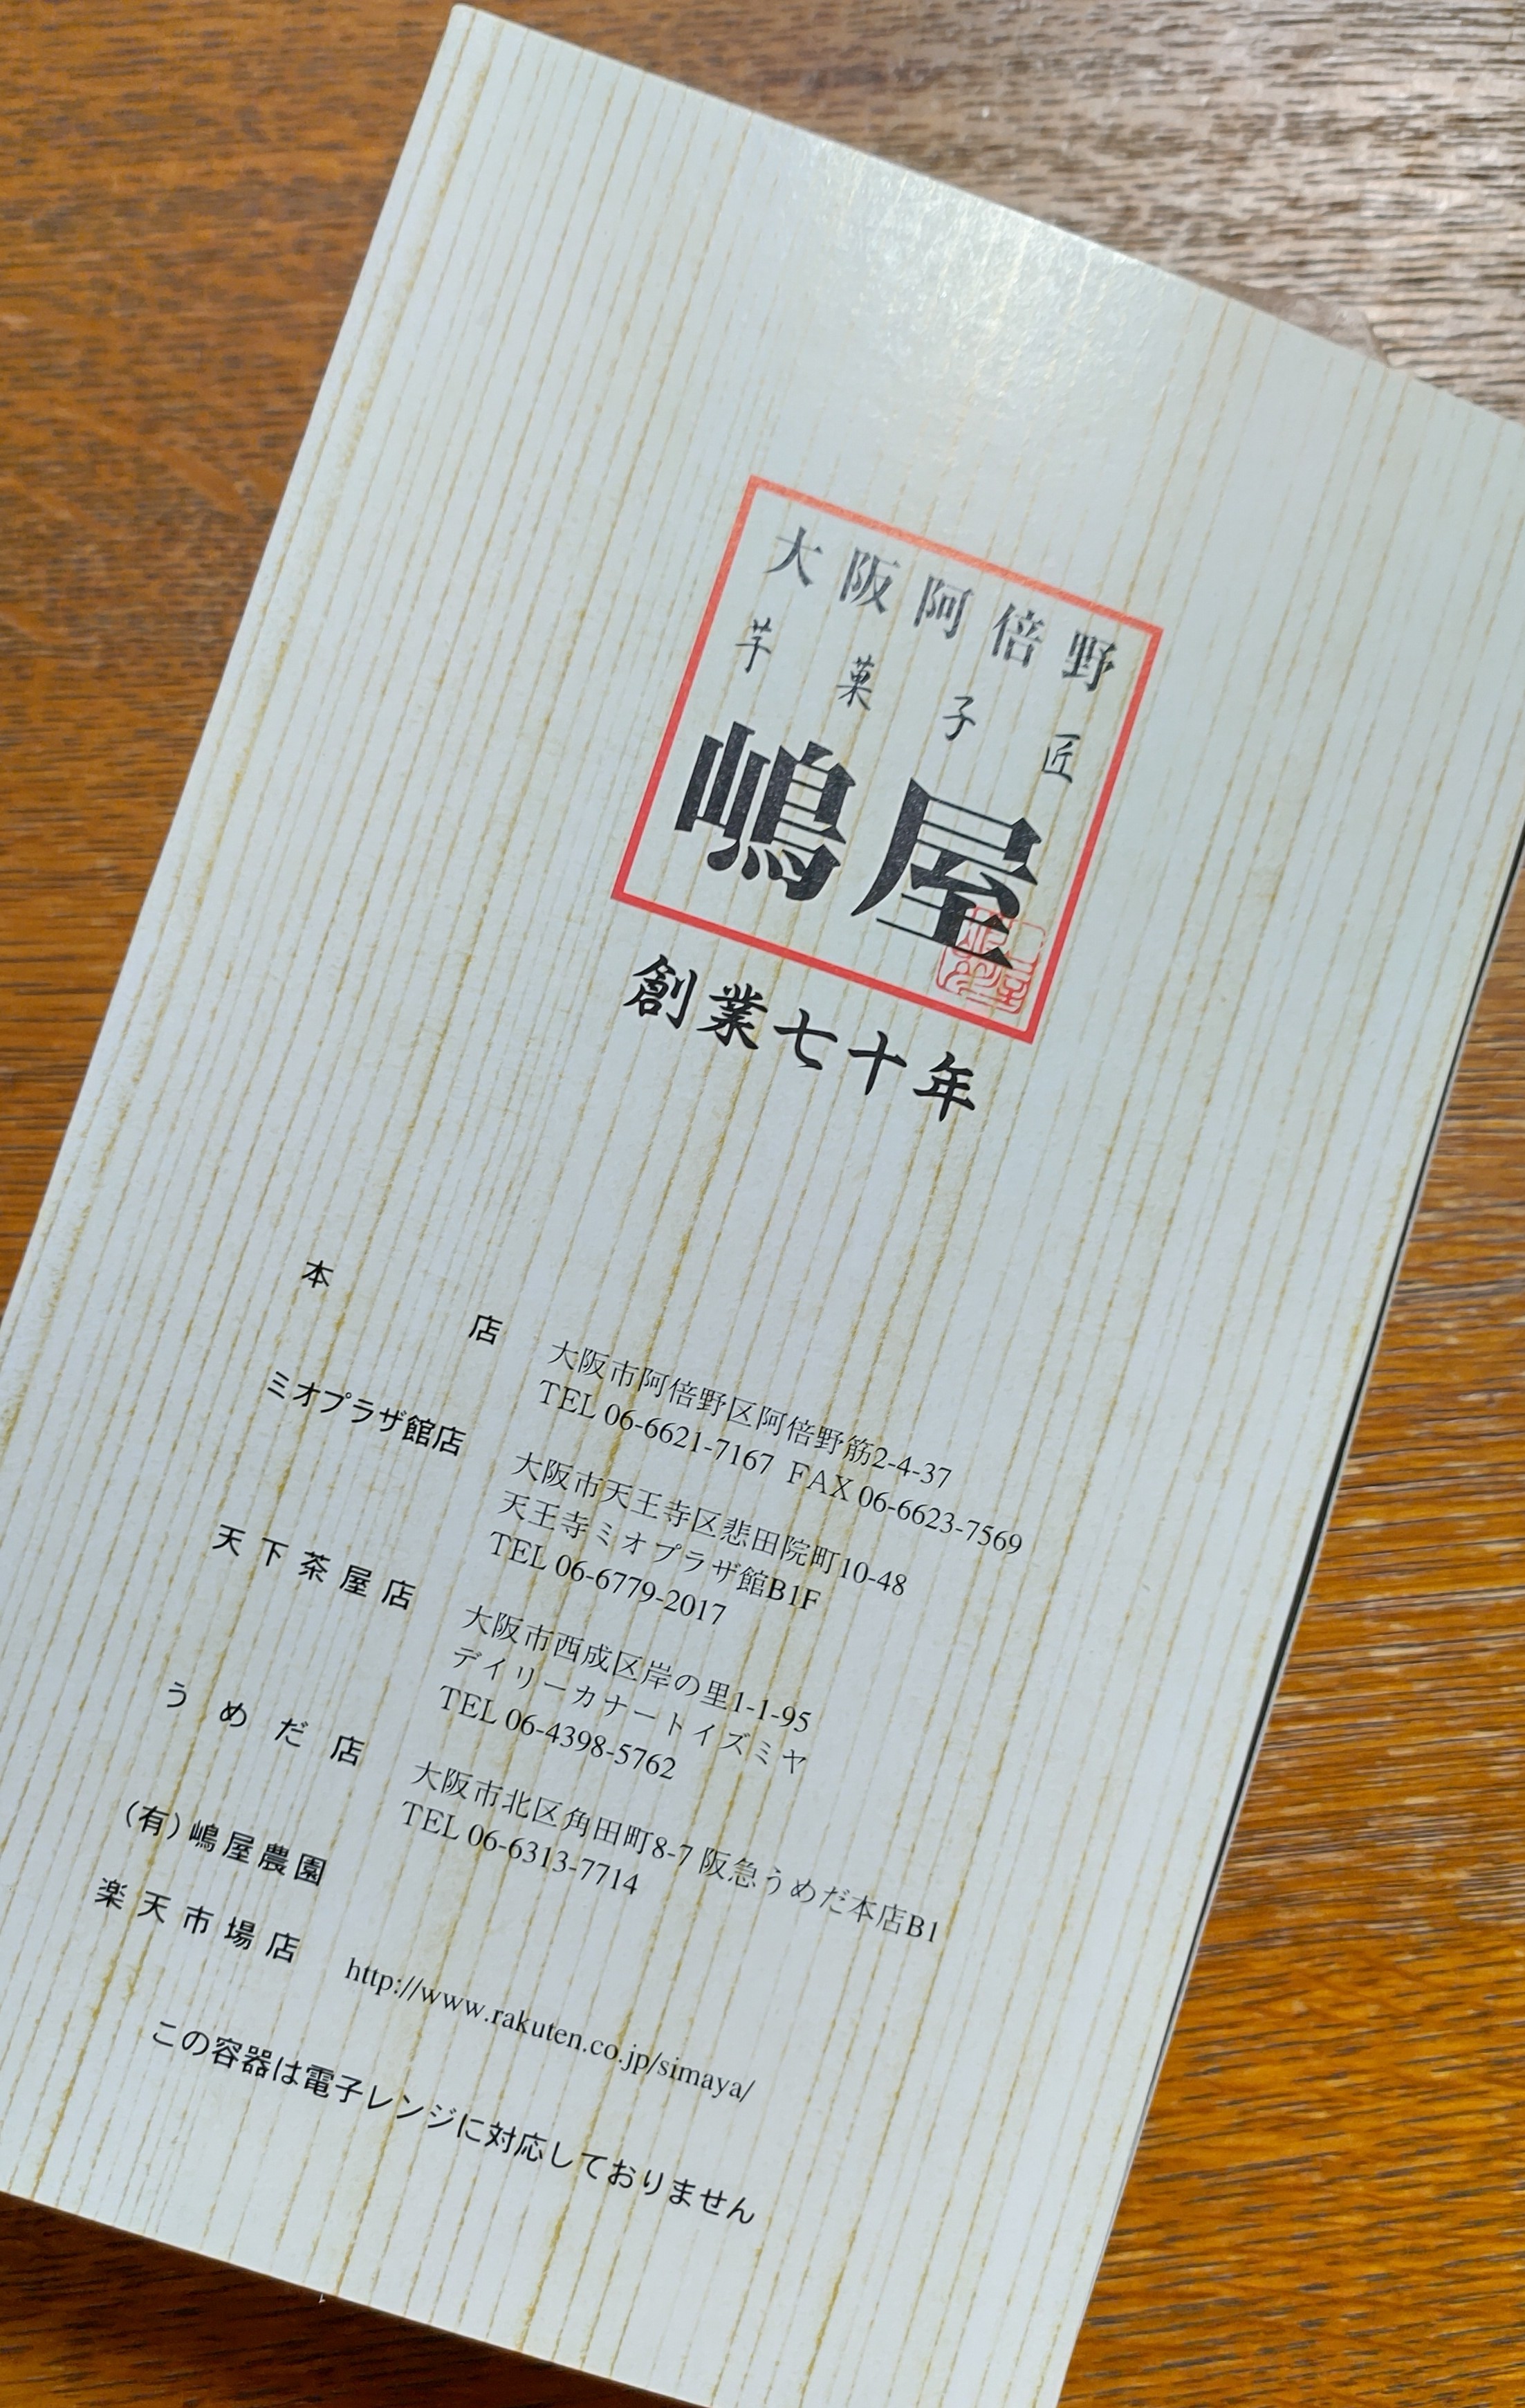 大阪阿倍野
芋菓子匠
嶋屋
創業七十年
本店 大阪市阿倍野区阿倍野筋2-4-37
TEL 06-6621-7167 FAX 06-6623-7569
ミオプラザ館店 大阪市天王寺区悲田院町10-48
天王寺ミオプラザ館B1F
TEL 06-6779-2017
天下茶屋店 大阪市西成区岸の里1-1-95
デイリーカナートイズミヤ
TEL 06-4398-5762
うめだ店 大阪市北区角田町8-7 阪急うめだ本店B1
TEL 06-6313-7714
(有)嶋屋農園
楽天市場店 http://www.rakuten.co.jp/simaya/
この容器は電子レンジに対応しておりません